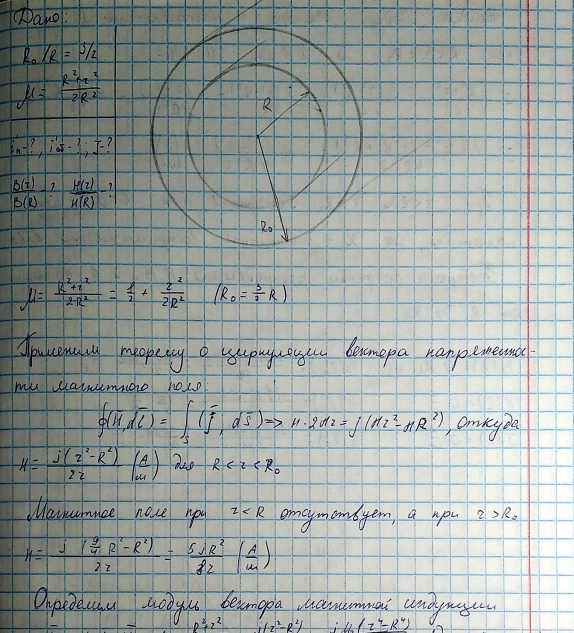 Дано:
R₀/R = 3/2
μ = (R²+r²)/(2R²)
i'п-?, i'об-?, J-?
B(r)/B(R) -? H(r)/H(R) -?
R
R₀
μ = (R²+r²)/(2R²) = 1/2 + r²/(2R²) (R₀ = 3/2 R)
Применим теорему о циркуляции вектора напряженнос-
ти магнитного поля:
∮(H,dl̄) = ∫S (j̄, ds̄) => H·2πr = j(πr²-πR²), откуда
H = j(r²-R²)/(2r) (А/м) для R < r < R₀
Магнитное поле при r < R отсутствует, а при r > R₀
H = j(9/4 R²-R²)/(2r) = 5jR²/(8r) (А/м)
Определим модуль вектора магнитной индукции